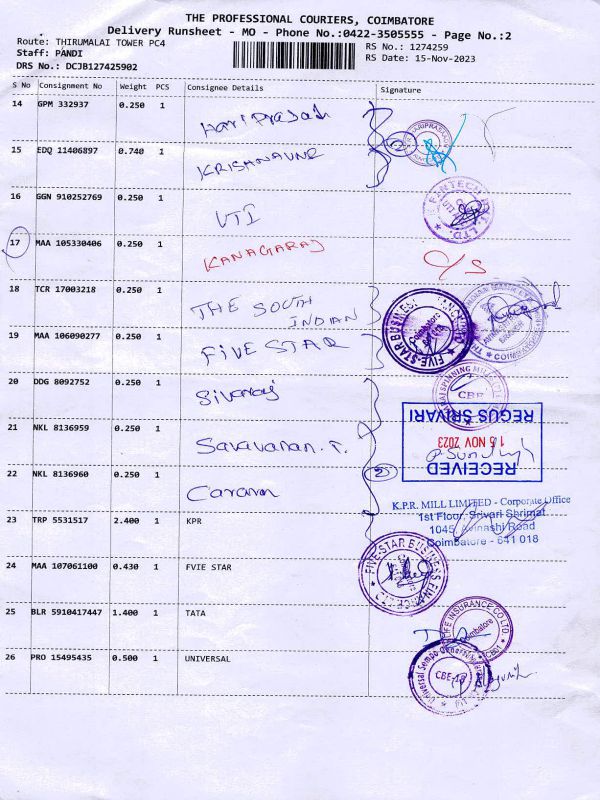 THE PROFESSIONAL COURIERS, COIMBATORE
Delivery Runsheet - MO - Phone No.:0422-3505555 - Page No.:2
Route: THIRUMALAI TOWER PC4
Staff: PANDI
DRS No.: DCJB127425902
RS No.: 1274259
RS Date: 15-Nov-2023
S No Consignment No Weight PCS Consignee Details Signature
14 GPM 332937 0.250 1 Hari Prasath
HARIPRASATH
15 EDQ 11406897 0.740 1 KRISHNAVNE
16 GGN 910252769 0.250 1 UTI
17 MAA 105330406 0.250 1 KANAGARAJ O/S
18 TCR 17003218 0.250 1 THE SOUTH
INDIAN
19 MAA 106090277 0.250 1 FIVE STAR
FIVE STAR BUSINESS
Coimbatore
20 DDG 8092752 0.250 1 Sivaraj
CBE
21 NKL 8136959 0.250 1 Saravanan. T.
REGUS SRIVARI
15 NOV 2023
RECEIVED
22 NKL 8136960 0.250 1 Caravan
K.P.R. MILL LIMITED - Corporate Office
1st Floor, Srivari Shrimat
1045, Avinashi Road
Coimbatore - 641 018
23 TRP 5531517 2.400 1 KPR
24 MAA 107061100 0.430 1 FVIE STAR
FIVE STAR BUSINESS FINANCE LTD
25 BLR 5910417447 1.400 1 TATA
LIFE INSURANCE CO LTD
Coimbatore
26 PRO 15495435 0.500 1 UNIVERSAL
Universal Sompo General
CBE-18